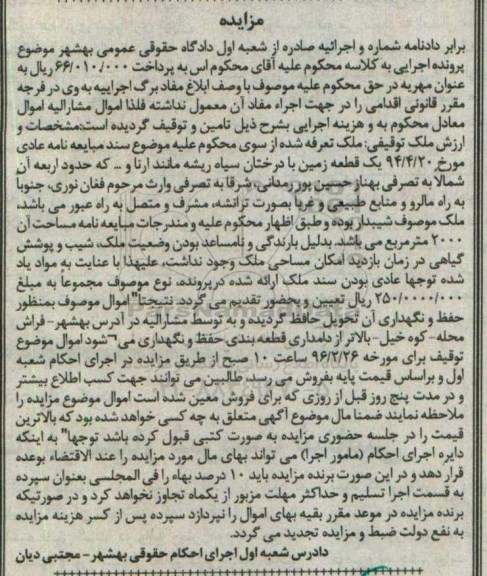 مزایده
برابر دادنامه شماره و اجرائیه صادره از شعبه اول دادگاه حقوقی عمومی بهشهر موضوع
پرونده اجرایی به کلاسه محکوم علیه آقای محکوم اس به پرداخت ۶۶/۰۱۰/۰۰۰ ریال به
عنوان مهریه در حق محکوم علیه موصوف با وصف ابلاغ مفاد برگ اجراییه به وی در فرجه
مقرر قانونی اقدامی را در جهت اجراء مفاد آن معمول نداشته فلذا اموال مشارالیه اموال
معادل محکوم به و هزینه اجرایی بشرح ذیل تامین و توقیف گردیده است:مشخصات و
ارزش ملک توقیفی: ملک تعرفه شده از سوی محکوم علیه موضوع سند مبایعه نامه عادی
مورخ ۹۴/۴/۲۰ یک قطعه زمین با درختان سیاه ریشه مانند ارتا و ... که حدود اربعه آن
شمالاً به تصرفی بهناز حسین پور رمدانی، شرقا به تصرفی وارث مرحوم فغان نوری، جنوباً
به راه مالرو و منابع طبیعی و غرباً بصورت ترانشه، مشرف و متصل به راه عبور می باشد،
ملک موصوف شیبدار بوده و طبق اظهار محکوم علیه و مندرجات مبایعه نامه مساحت آن
۲۰۰۰ مترمربع می باشد. بدلیل بارندگی و نامساعد بودن وضعیت ملک، شیب و پوشش
گیاهی در زمان بازدید امکان مساحی ملک وجود نداشت، علیهذا با عنایت به مواد یاد
شده توجها عادی بودن سند ملک ارائه شده در پرونده، نوع موصوف مجموعاً به مبلغ
۲۵۰/۰۰۰۰/۰۰۰ ریال تعیین و بحضور تقدیم می گردد. نتیجتاً" اموال موصوف بمنظور
حفظ و نگهداری آن تحویل حافظ گردیده و به توسط مشارالیه در آدرس بهشهر- فراش
محله- کوه خیل- بالاتر از دامداری قطعه بندی حفظ و نگهداری می شود اموال موضوع
توقیف برای مورخه ۹۶/۲/۲۶ ساعت ۱۰ صبح از طریق مزایده در اجرای احکام شعبه
اول و براساس قیمت پایه بفروش می رسد. طالبین می توانند جهت کسب اطلاع بیشتر
و در مدت پنج روز قبل از روزی که برای فروش معین شده است اموال موضوع مزایده را
ملاحظه نمایند ضمنا مال موضوع آگهی متعلق به چه کسی خواهد شده بود که بالاترین
قیمت را در جلسه حضوری مزایده به صورت کتبی قبول کرده باشد توجها" به اینکه
دایره اجرای احکام (مامور اجرا) می تواند بهای مال مورد مزایده را عند الاقتضاء بوعده
قرار دهد و در این صورت برنده مزایده باید ۱۰ درصد بهاء را فی المجلسی بعنوان سپرده
به قسمت اجرا تسلیم و حداکثر مهلت مزبور از یکماه تجاوز نخواهد کرد و در صورتیکه
برنده مزایده در موعد مقرر بقیه بهای اموال را نپردازد سپرده پس از کسر هزینه مزایده
به نفع دولت ضبط و مزایده تجدید می گردد.
دادرس شعبه اول اجرای احکام حقوقی بهشهر- مجتبی دیان